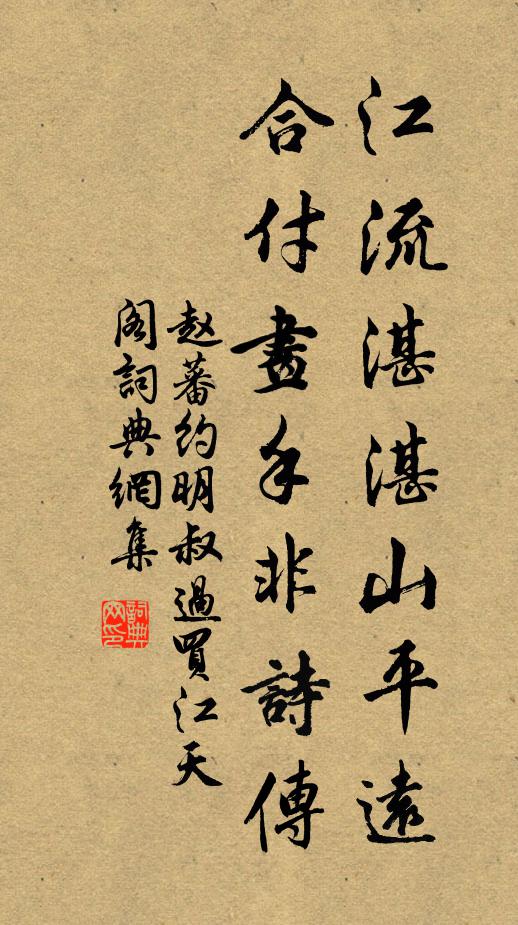 江流湛湛山平遠
合付畫手非詩傳
赵蕃約明叔過買江天
阁詞典網集
詞典網印